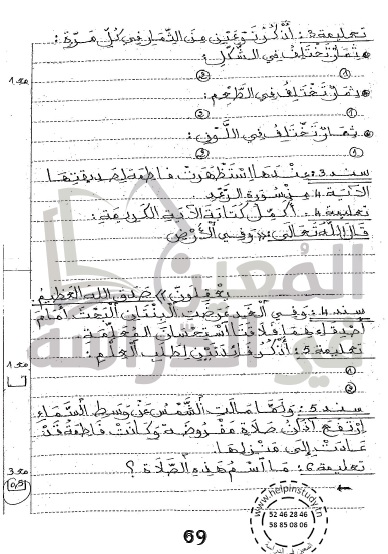 تعليمة 3: أذكر نوعين من الثمار في كل مرة:
• ثمار تختلف في الشكل:
① ②
• ثمار تختلف في الطعم:
① ②
• ثمار تختلف في اللون:
① ②
سند 3: عندما استظهرت فاطمة لصديقتها
الآية 4 من سورة الرعد
تعليمة 4: أكمل كتابة الآية الكريمة:
قال الله تعالى: «وفي الأرض
يعقلون» صدق الله العظيم.
سند 4: وفي الغد عرضت البنتان البحث أمام
أصدقاءهما فلاقتا استحسان المعلمة
تعليمة 5: أذكر فائدتين لطلب العلم:
①
②
سند 5: ولما مالت الشمس عن وسط السماء
ارتفع آذان صلاة مفروضة وكانت فاطمة قد
عادت إلى منزلها.
تعليمة 6: ما اسم هذه الصلاة؟
مع 1
مع 1
مع 3
المعين
في الدراسة
www.helpinstudy.tn
52 46 28 46
58 85 08 06
69